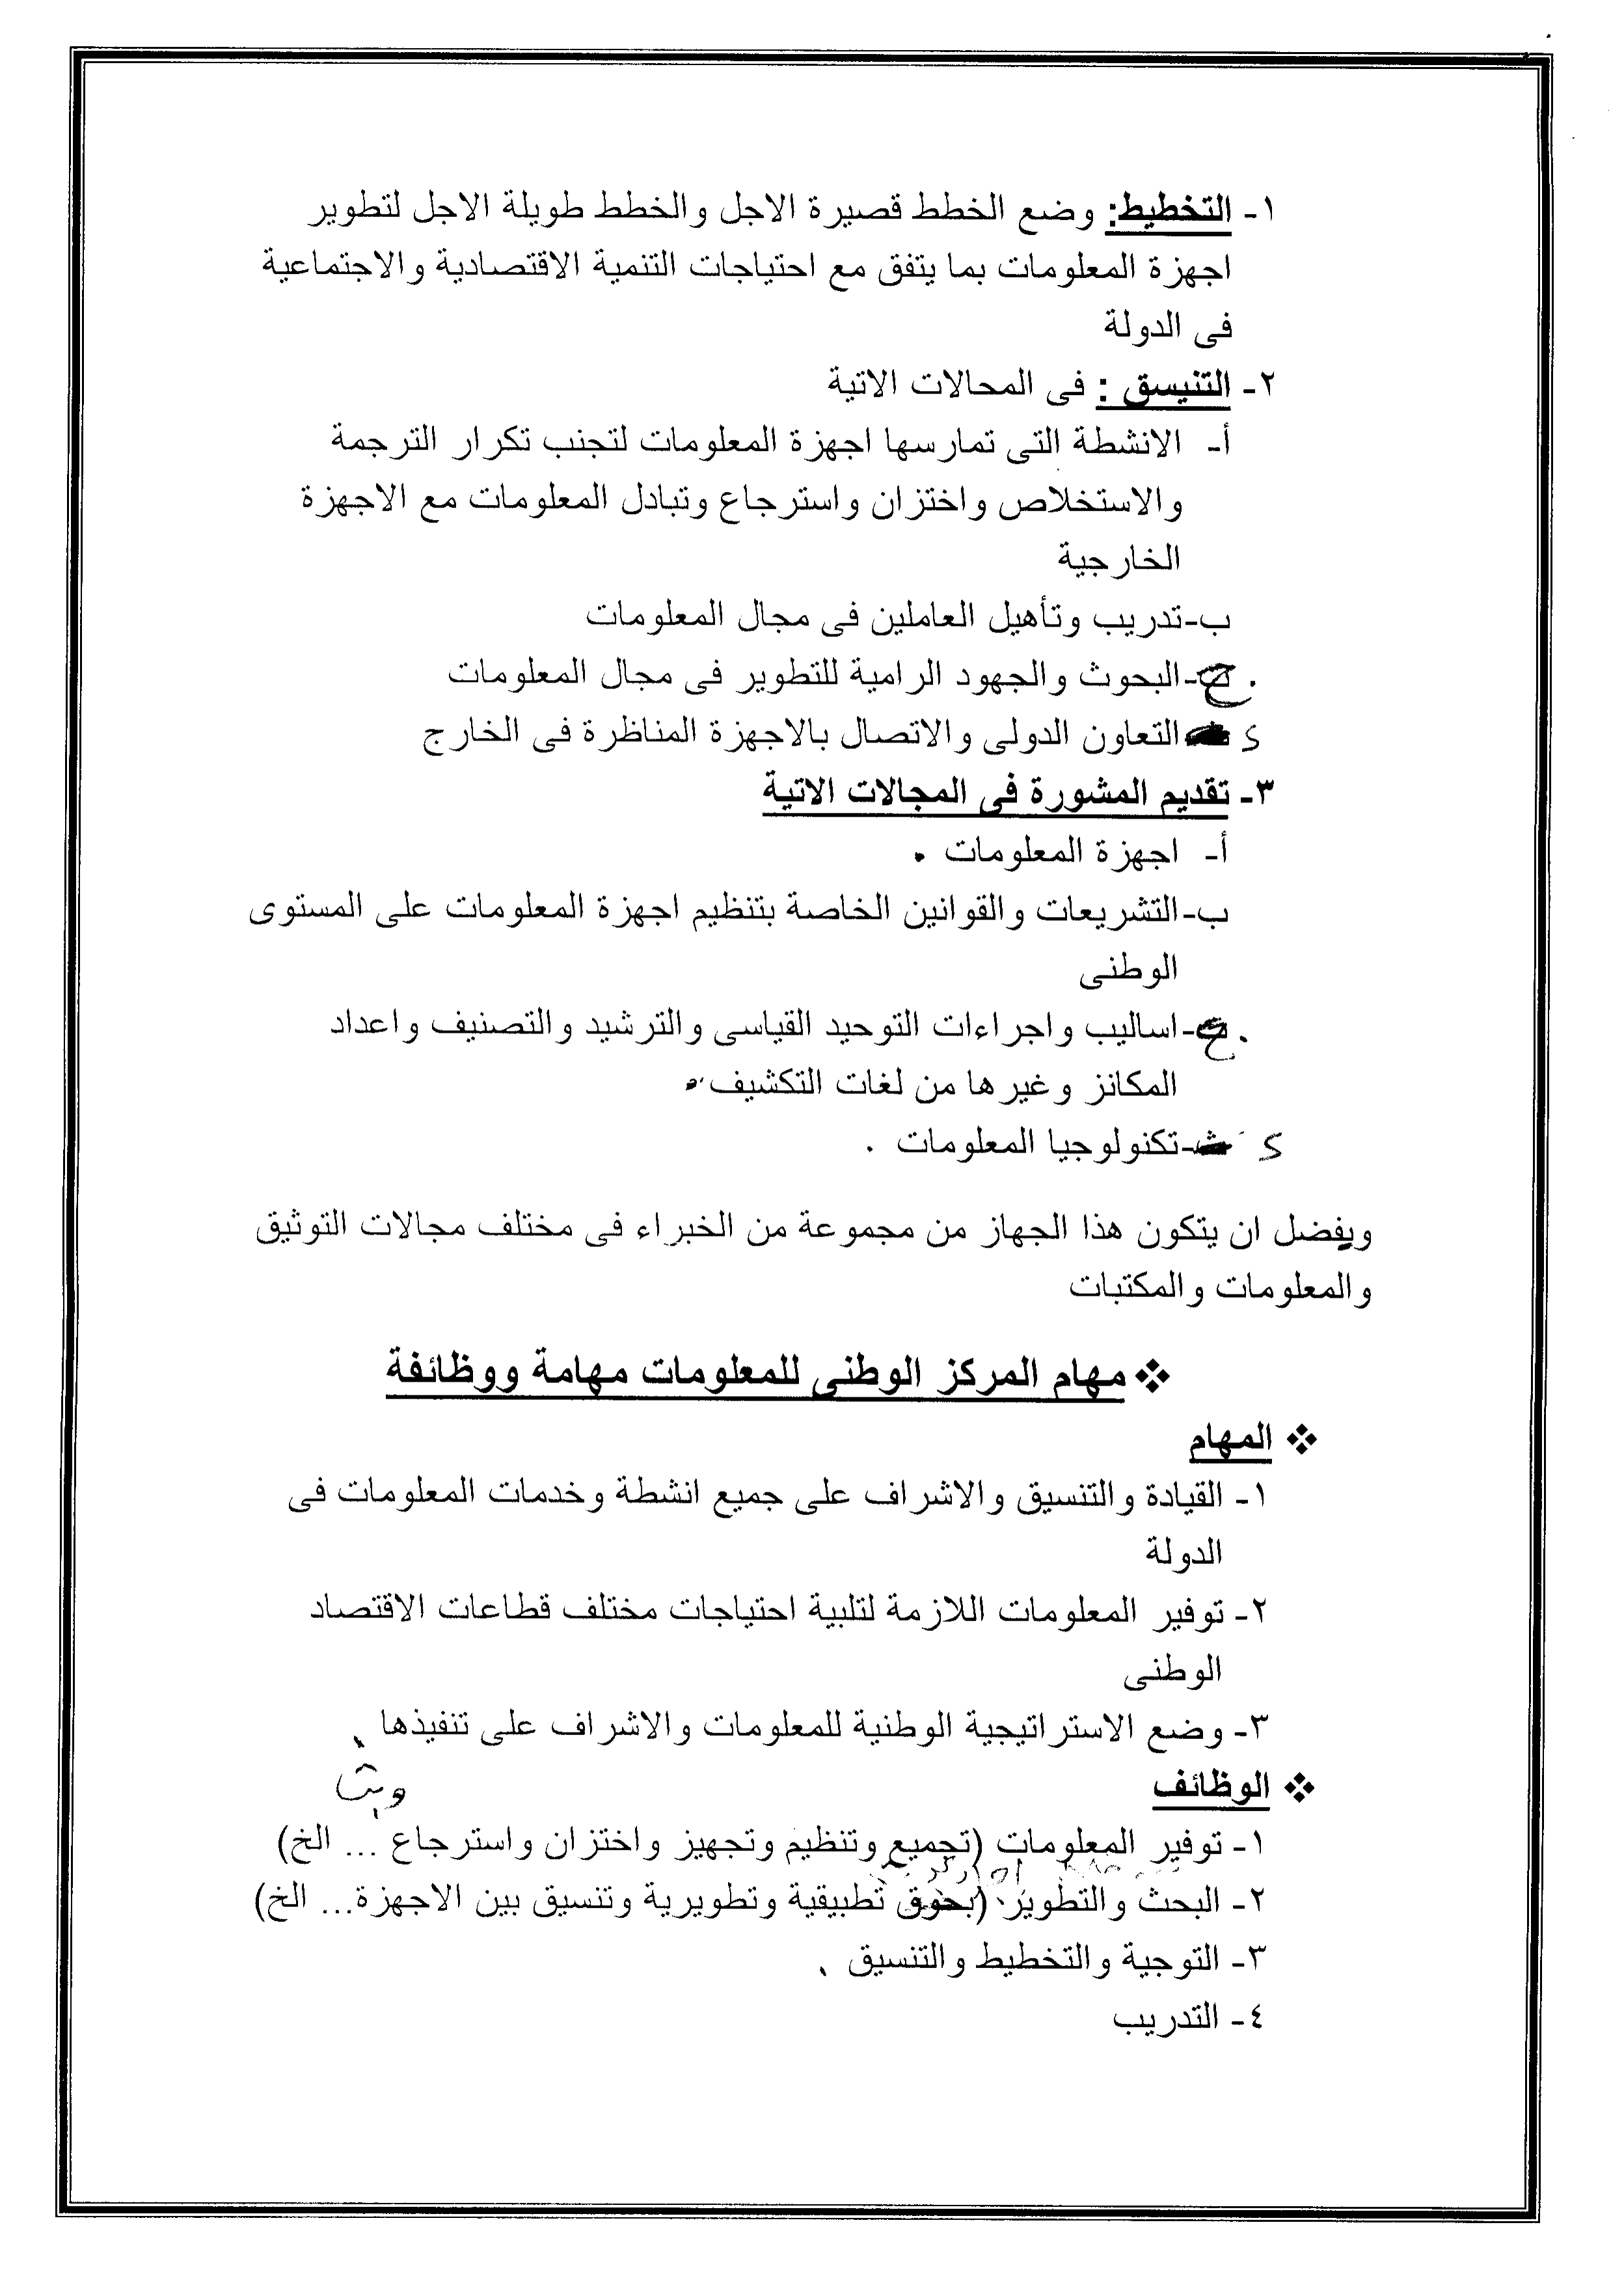 ١- التخطيط: وضع الخطط قصيرة الاجل والخطط طويلة الاجل لتطوير
اجهزة المعلومات بما يتفق مع احتياجات التنمية الاقتصادية والاجتماعية
فى الدولة
٢- التنيسق : فى المحالات الاتية
أ- الانشطة التى تمارسها اجهزة المعلومات لتجنب تكرار الترجمة
والاستخلاص واختزان واسترجاع وتبادل المعلومات مع الاجهزة
الخارجية
ب-تدريب وتأهيل العاملين فى مجال المعلومات
ج-البحوث والجهود الرامية للتطوير فى مجال المعلومات
د التعاون الدولى والاتصال بالاجهزة المناظرة فى الخارج
٣- تقديم المشورة فى المجالات الاتية
أ- اجهزة المعلومات .
ب-التشريعات والقوانين الخاصة بتنظيم اجهزة المعلومات على المستوى
الوطنى
ج-اساليب واجراءات التوحيد القياسى والترشيد والتصنيف واعداد
المكانز وغيرها من لغات التكشيف.
د ث-تكنولوجيا المعلومات .
ويفضل ان يتكون هذا الجهاز من مجموعة من الخبراء فى مختلف مجالات التوثيق
والمعلومات والمكتبات
❖ مهام المركز الوطنى للمعلومات مهامة ووظائفة
❖ المهام
١- القيادة والتنسيق والاشراف على جميع انشطة وخدمات المعلومات فى
الدولة
٢- توفير المعلومات اللازمة لتلبية احتياجات مختلف قطاعات الاقتصاد
الوطنى
٣- وضع الاستراتيجية الوطنية للمعلومات والاشراف على تنفيذها
❖ الوظائف
وبث
١- توفير المعلومات (تجميع وتنظيم وتجهيز واختزان واسترجاع ... الخ)
٢- البحث والتطوير (بحوق تطبيقية وتطويرية وتنسيق بين الاجهزة... الخ)
٣- التوجية والتخطيط والتنسيق
٤- التدريب